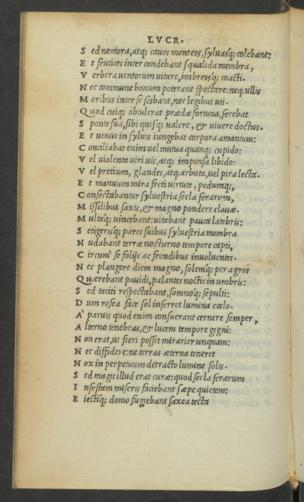 LVCR.
S ed nemora, atq; cauos monteis, syluasq; colebant:
E t frutices inter condebant squalida membra,
V erbera uentorum uitare, imbreisq; coacti.
N ec commune bonum poterant spectare: neq; ullis
M oribus inter se scibant, nec legibus uti.
Q uod cuiq; obtulerat prædæ fortuna, ferebat
S ponte sua, sibi quisq; ualere, & uiuere doctus.
E t uenus in syluis iungebat corpora amantum:
C onciliabat enim uel mutua quanq; cupido:
V el uiolenta uiri uis, atq; impensa libido:
V el pretium, glandes, atq; arbuta, uel pira lecta.
E t manuum mira freti uirtute, pedumq;,
C onsectabantur syluestria secla ferarum,
M issilibus saxis, & magno pondere clauæ.
M ultaq; uincebant: uitabant pauca latebris:
S etigerisq; pares suibus syluestria membra
N udabant terræ nocturno tempore capti,
C ircum se folijs ac frondibus inuoluentes.
N ec plangore diem magno, solemq; per agros
Q uærebant pauidi, palantes noctis in umbris:
S ed taciti respectabant, somnoq; sepulti:
D um rosea face sol inferret lumina cœlo.
A' paruis quod enim consuerant cernere semper,
A lterno tenebras, & lucem tempore gigni:
N on erat, ut fieri posset mirarier unquam:
N ec diffidere: ne terras æterna teneret
N ox in perpetuum detracto lumine solis.
S ed magis illud erat curæ: quod secla ferarum
I nfestam miseris faciebant sæpe quietem:
E iectiq; domo fugiebant saxea tecta